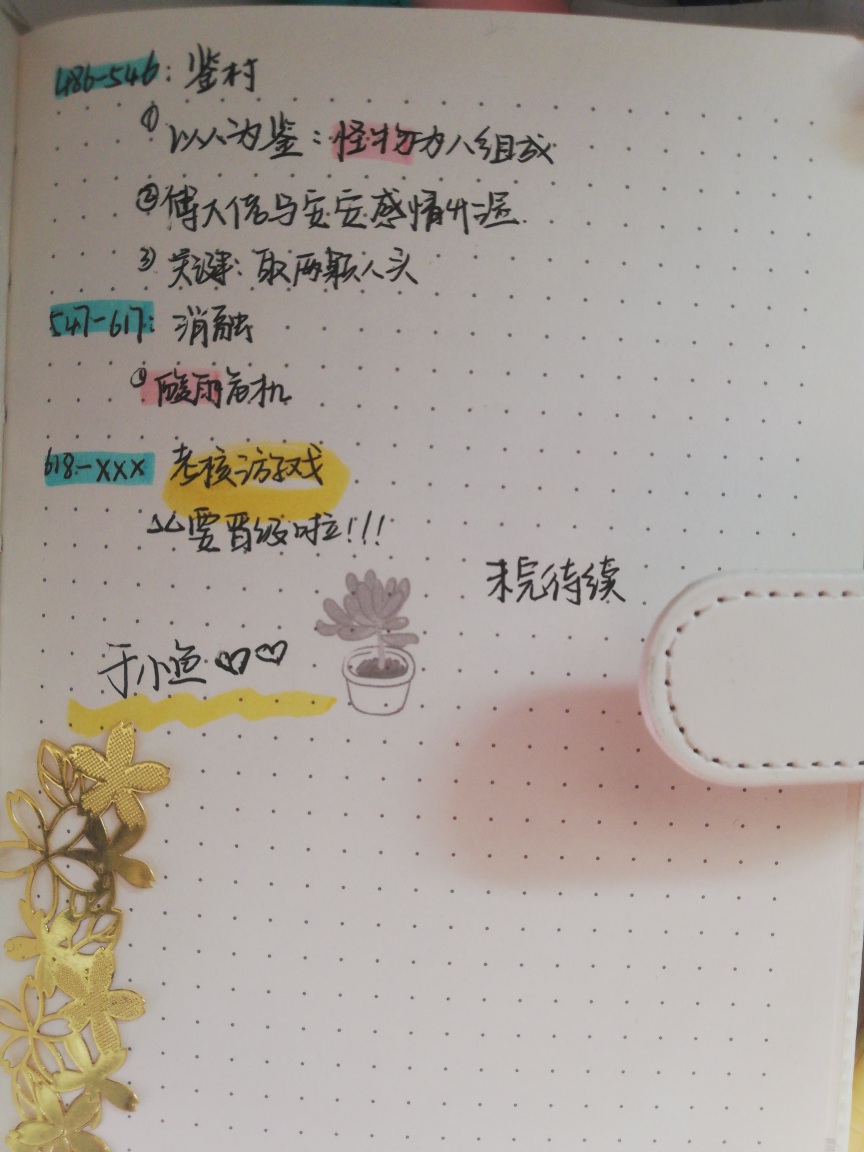 486-546：鉴村
① 以人为鉴：怪物为人组成
② 傅大佬与安安感情升温
③ 关键：取两颗人头
547-617：消融
① 酸雨危机
618-XXX 考核游戏
要晋级啦!!!
未完待续
于小鱼♡♡